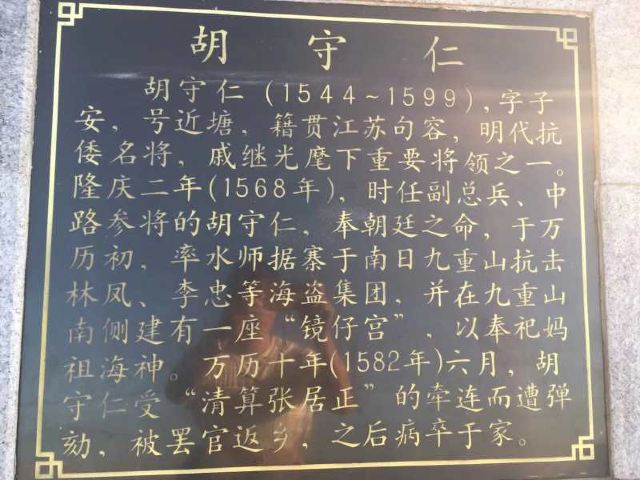 胡守仁
胡守仁(1544~1599),字子
安，号近塘，籍贯江苏句容，明代抗
倭名将，戚继光麾下重要将领之一。
隆庆二年(1568年)，时任副总兵、中
路参将的胡守仁，奉朝廷之命，于万
历初，率水师据寨于南日九重山抗击
林凤、李忠等海盗集团，并在九重山
南侧建有一座“镜仔宫”，以奉祀妈
祖海神。万历十年(1582年)六月，胡
守仁受“清算张居正”的牵连而遭弹
劾，被罢官返乡，之后病卒于家。